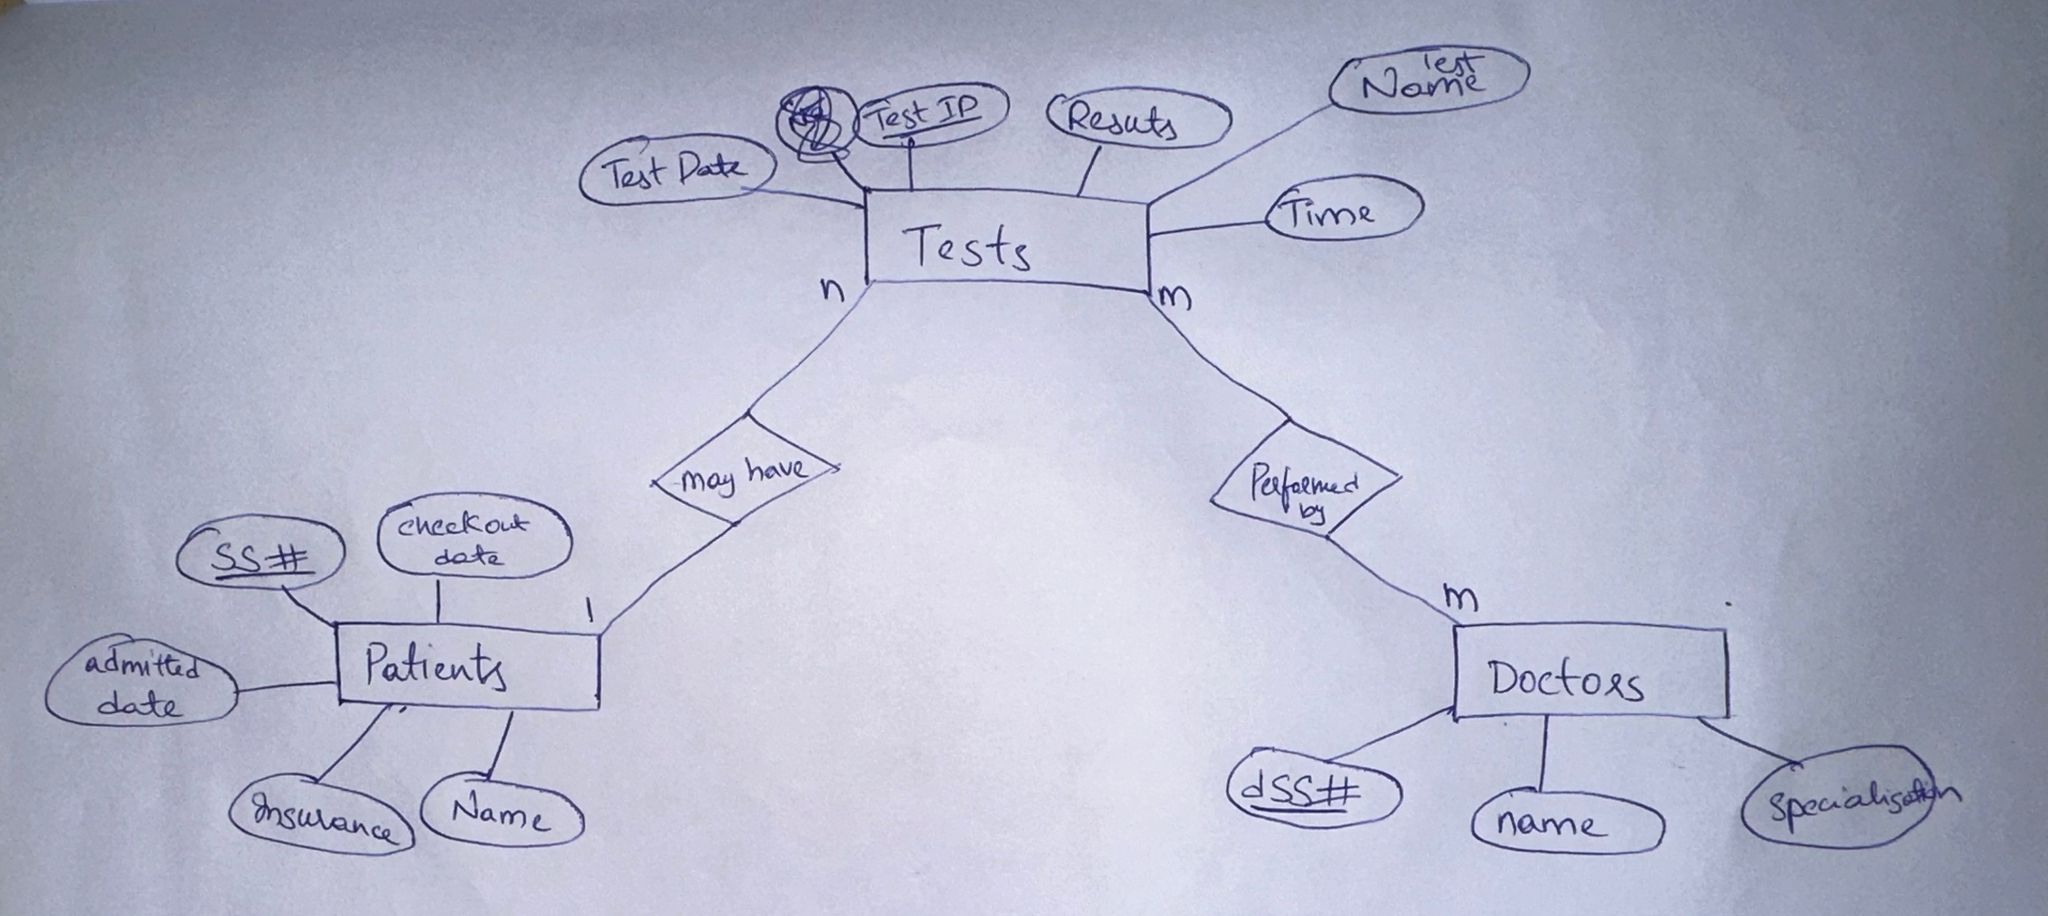 Test
Name
Test IP
Resuts
Test Date
Time
Tests
n
m
may have
Performed
by
checkout
date
SS#
1
m
admitted
date
Patients
Doctors
dSS#
Insurance
Name
name
specialisation